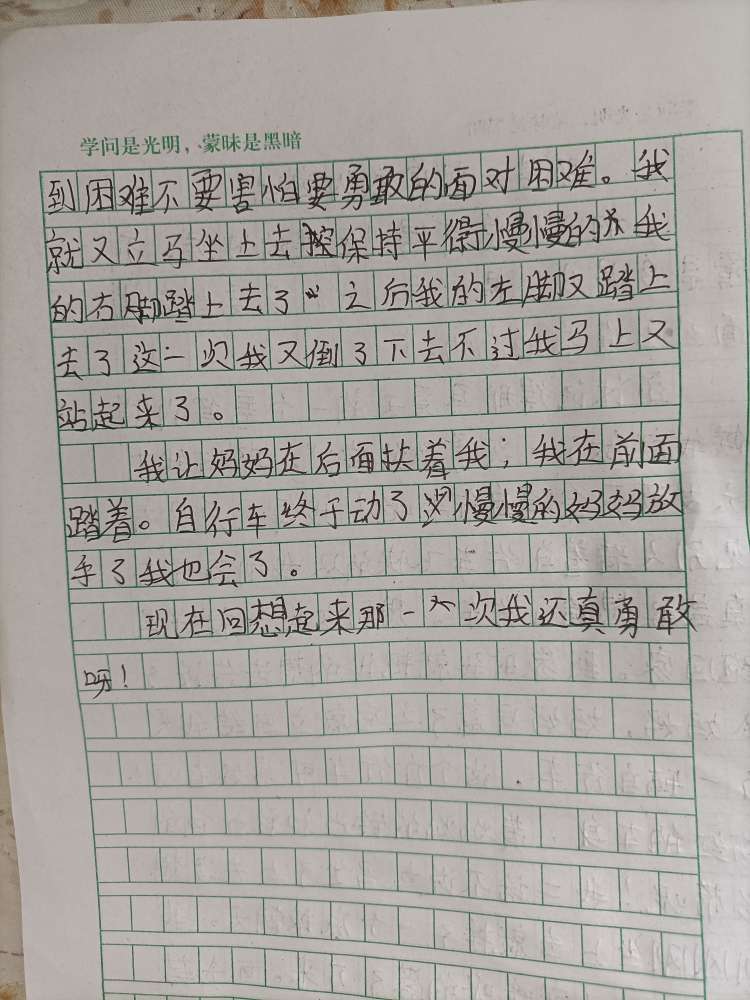 学问是光明，蒙昧是黑暗
到困难不要害怕要勇敢的面对困难。我
就又立马坐上去保持平得慢慢的我
的右脚踏上去了之后我的左脚又踏上
去了这一次我又倒了下去不过我马上又
站起来了。
我让妈妈在后面扶着我；我在前面
踏着。自行车终于动了慢慢的妈妈放
手了我也会了。
现在回想起来那一次我还真勇敢
呀！